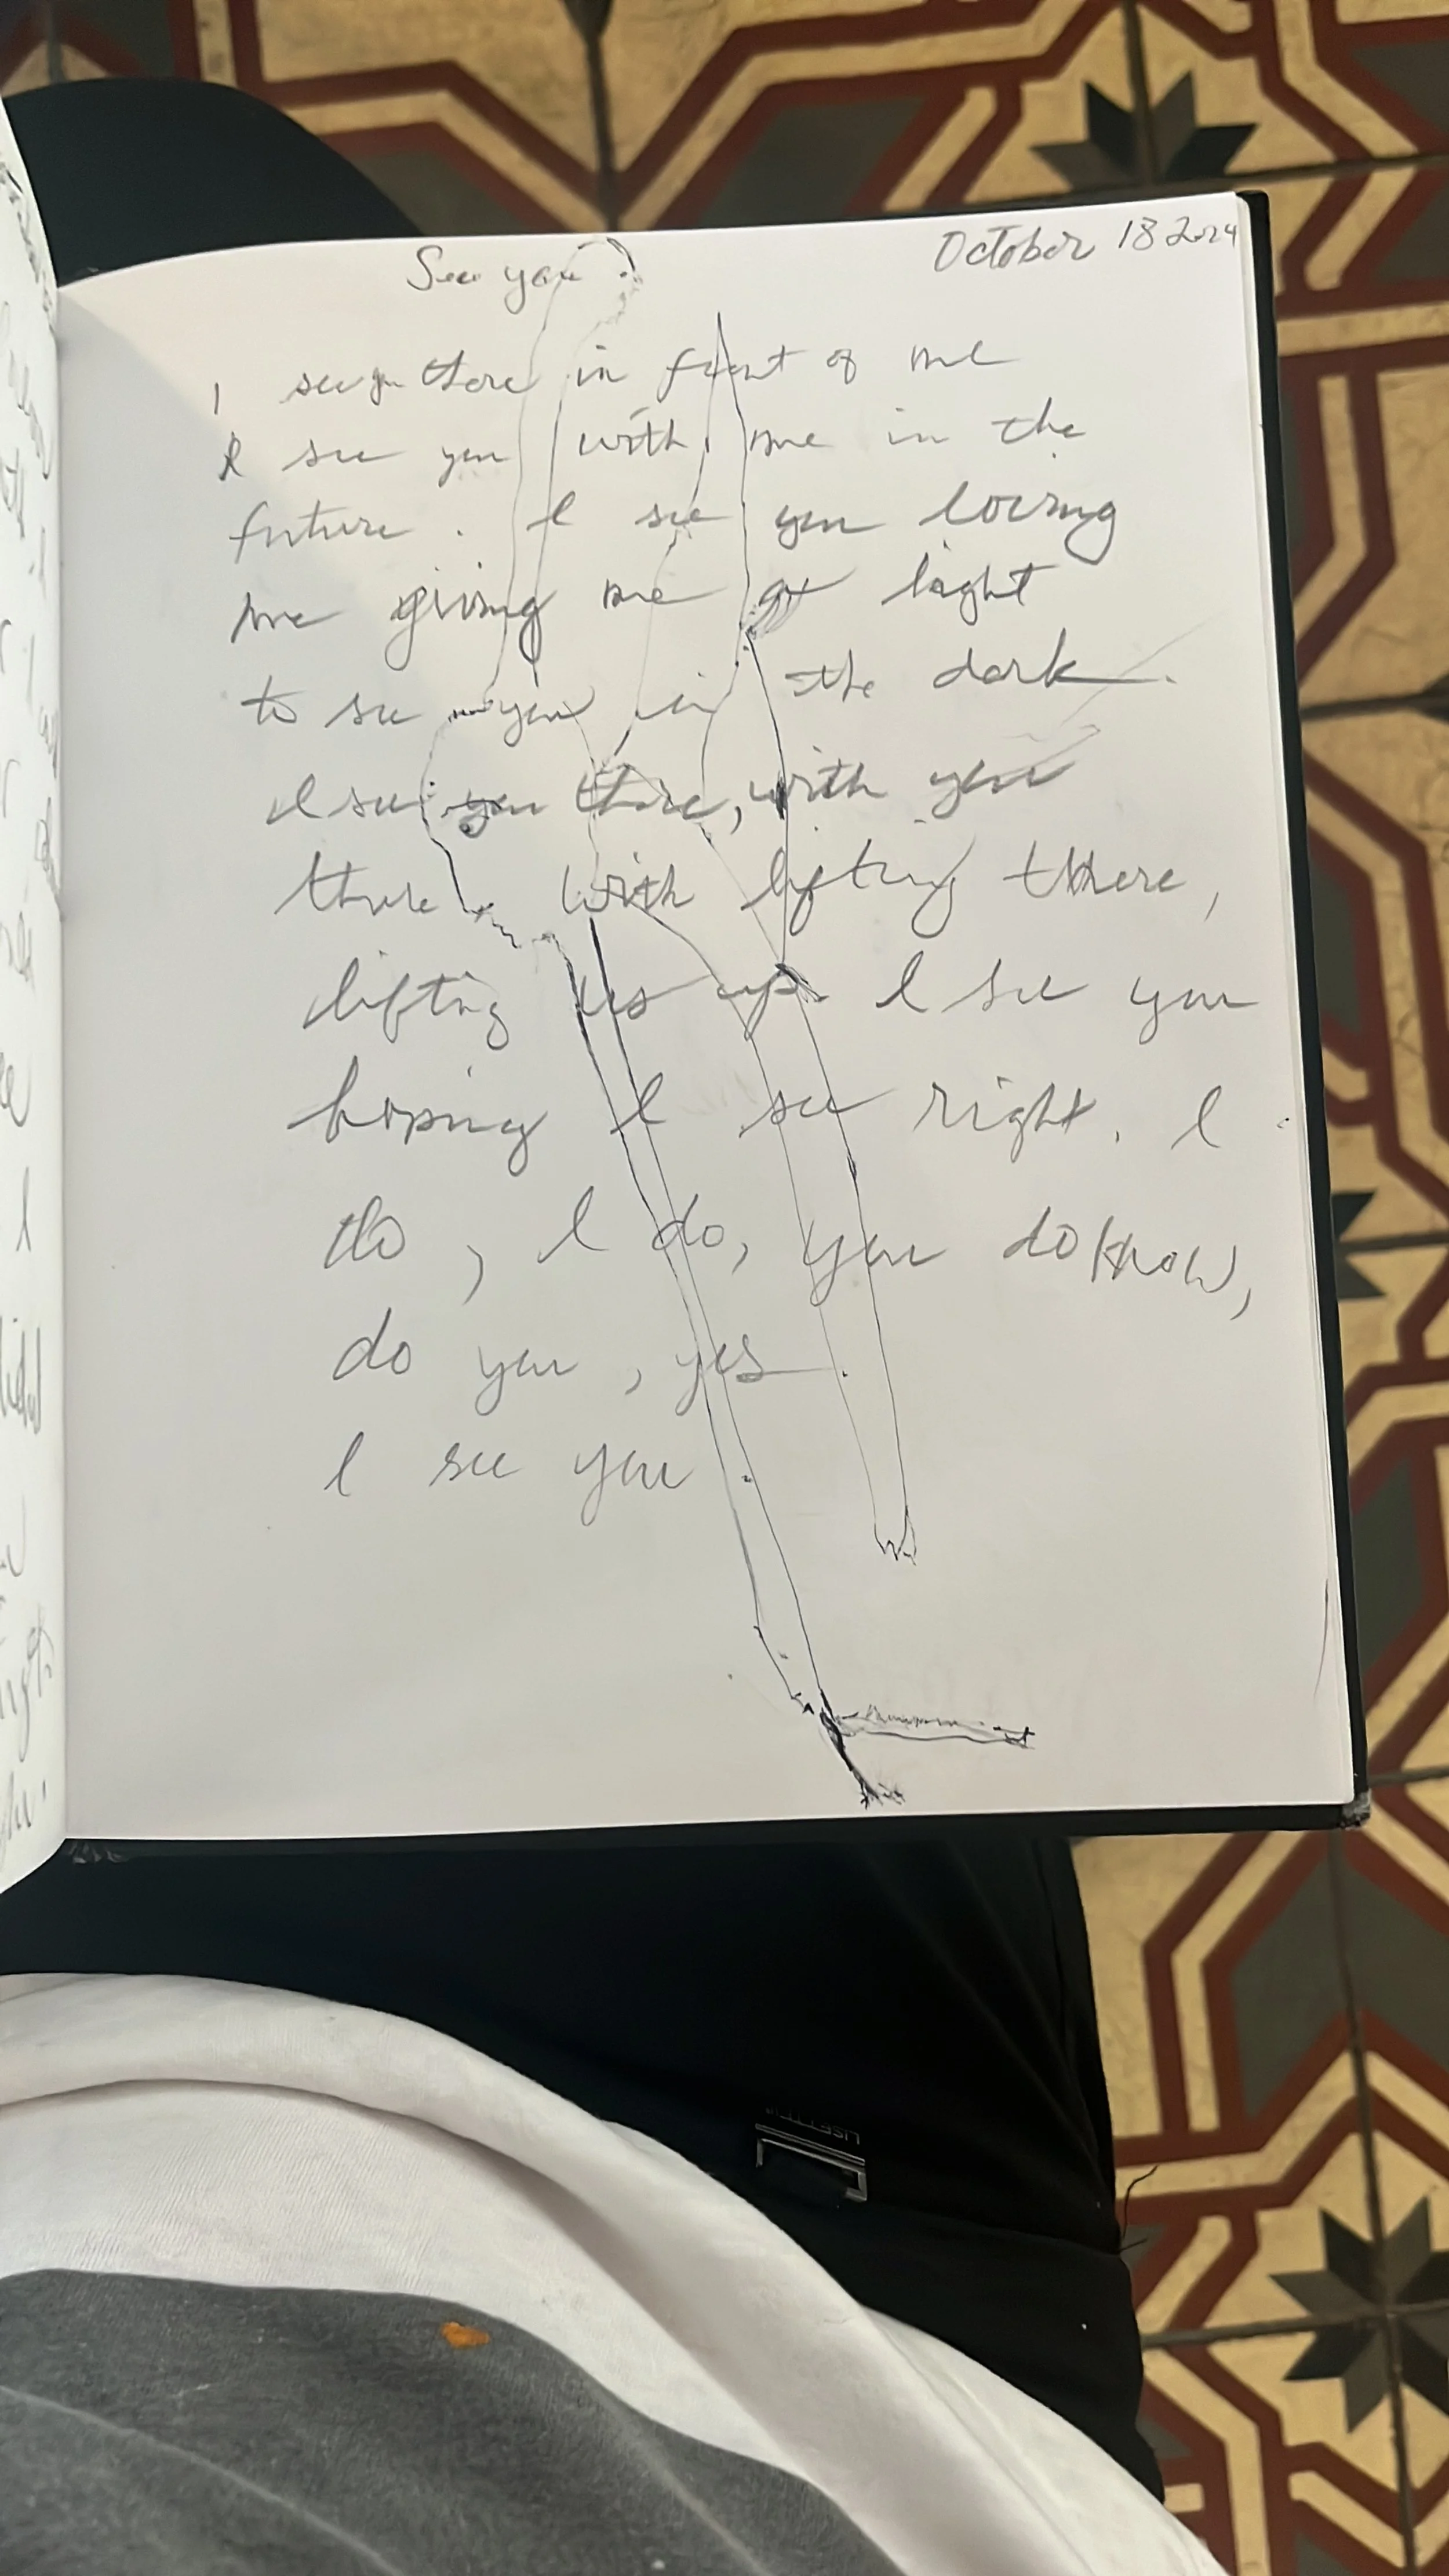 See you
October 18 2024
I see you there in front of me
I see you with me in the
future. I see you loving
me giving me light
to see you in the dark.
I see you there, with you
there with lifting there,
lifting us up. I see you
hoping I see right. I
do, I do, you do know,
do you, yes.
I see you